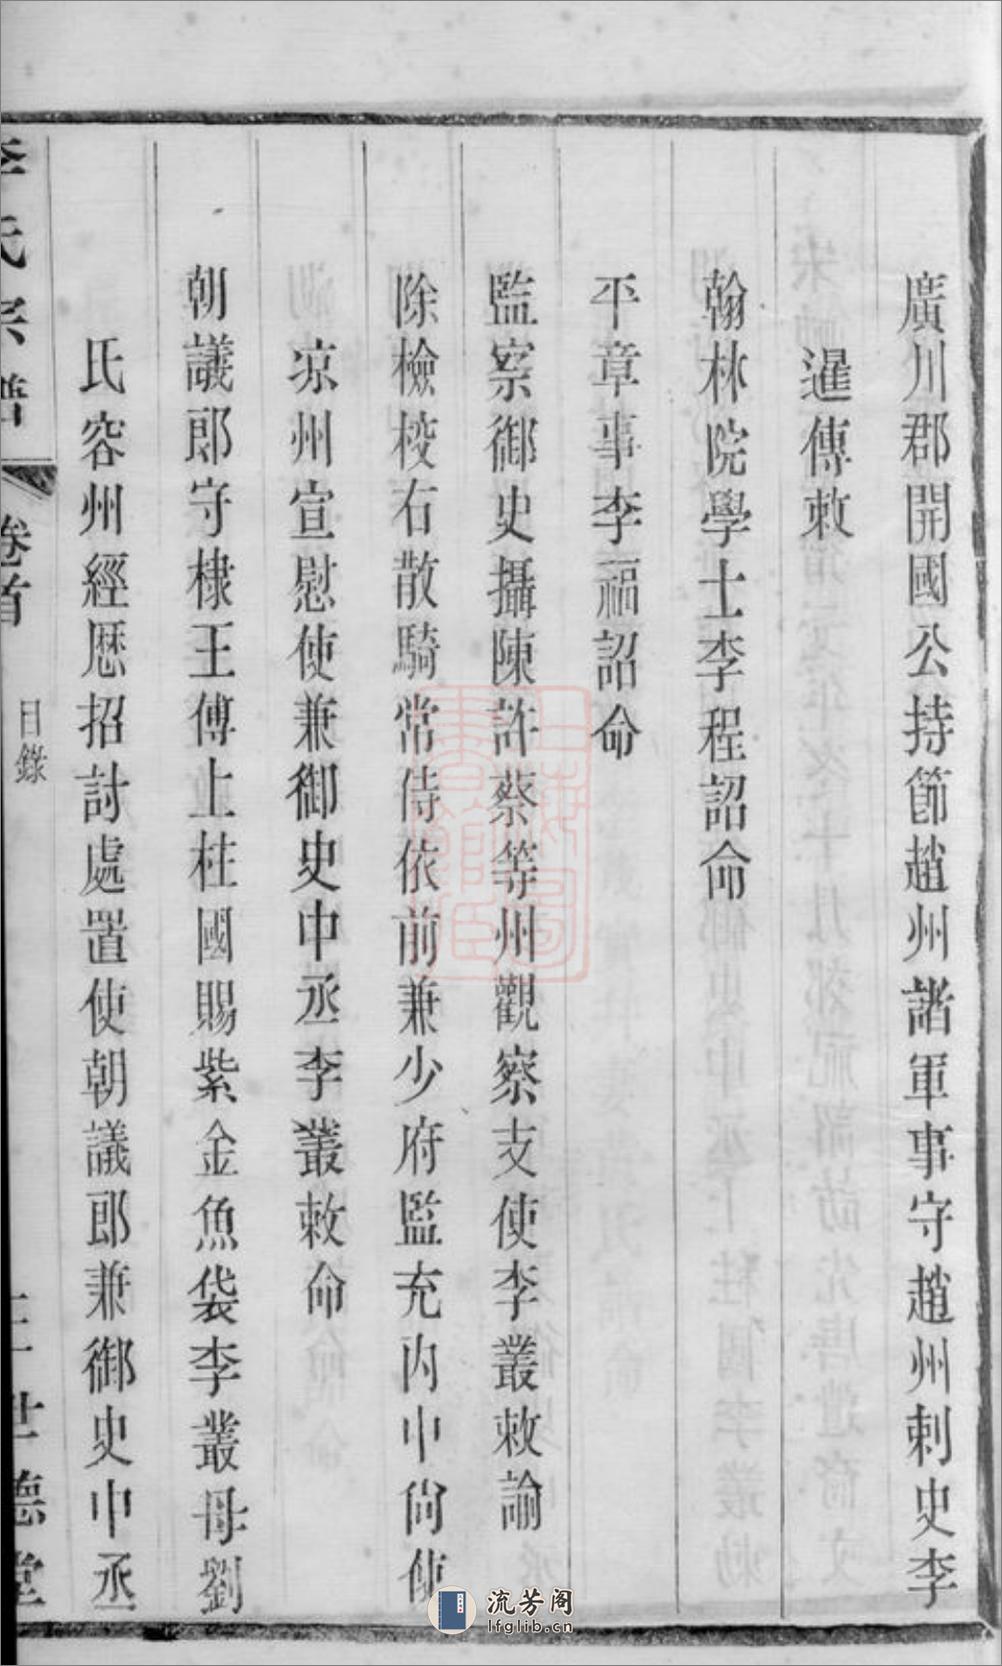 廣川郡開國公持節趙州諸軍事守趙州刺史李
暹傳敕
翰林院學士李程詔命
平章事李福詔命
監察御史攝陳許蔡等州觀察支使李叢敕諭
除檢校右散騎常侍依前兼少府監充内中尚使
涼州宣慰使兼御史中丞李叢敕命
朝議郎守棣王傅上柱國賜紫金魚袋李叢母劉
氏容州經歷招討處置使朝議郎兼御史中丞
李氏宗譜
卷首
目錄
世德堂
流芳阁
lfglib.cn